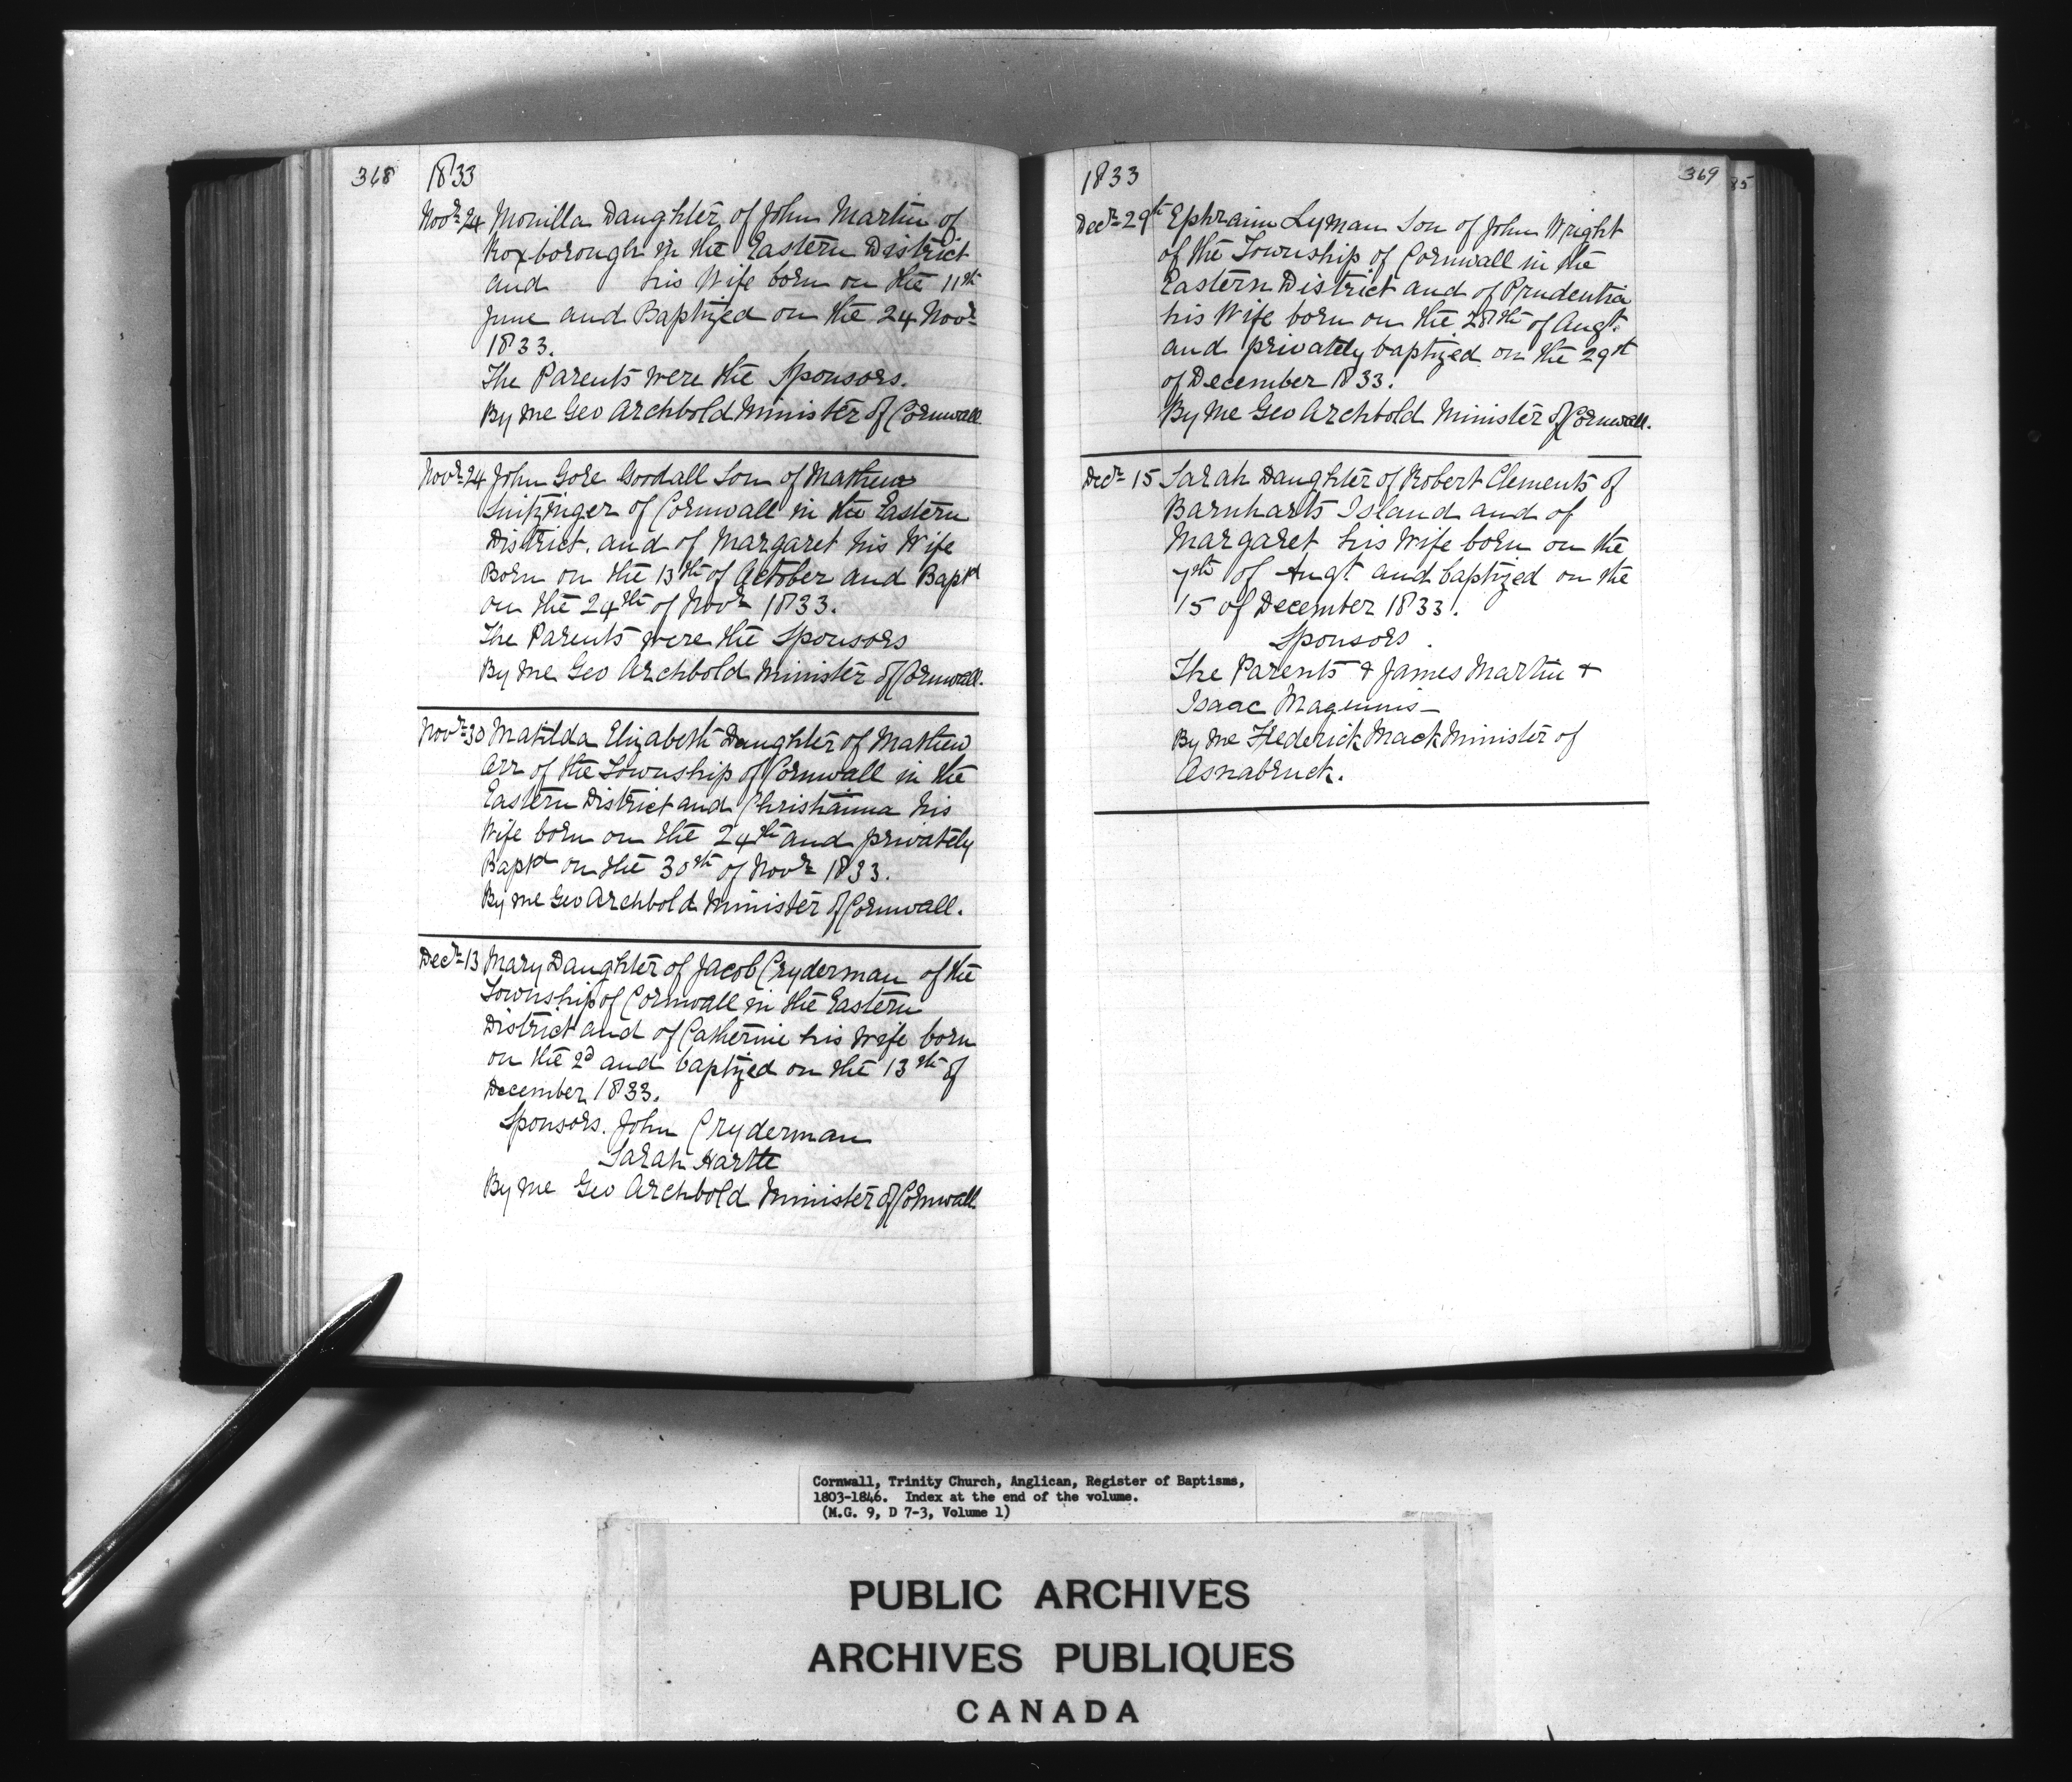 368 1833
Novr 24 Monilla Daughter of John Martin of
Roxborough in the Eastern District
and his Wife born on the 11th
June and Baptized on the 24 Novr
1833.
The Parents were the Sponsors.
By me Geo Archbold Minister of Cornwall.
Novr 24 John Gore Goodall Son of Mathew
Snitzinger of Cornwall in the Eastern
District. and of Margaret his Wife
Born on the 13th of October and Baptd
on the 24th of Novr 1833.
The Parents were the Sponsors
By me Geo Archbold Minister of Cornwall.
Novr 30 Matilda Elizabeth Daughter of Mathew
Arr of the Township of Cornwall in the
Eastern District and Christianna his
Wife born on the 24th and privately
Baptd on the 30th of Novr 1833.
By me Geo Archbold Minister of Cornwall.
Decr 13 Mary Daughter of Jacob Cryderman of the
Township of Cornwall in the Eastern
District and of Catherine his Wife born
on the 2d and baptized on the 13th of
December 1833.
Sponsors. John Cryderman
Sarah Hartle
By me Geo Archbold Minister of Cornwall
1833 369
85
Decr 29th Ephraim Lyman Son of John Wright
of the Township of Cornwall in the
Eastern District and of Prudentia
his Wife born on the 28th of Augt.
and privately baptized on the 29th
of December 1833.
By me Geo Archbold Minister of Cornwall.
Decr 15 Sarah Daughter of Robert Clements of
Barnharts Island and of
Margaret his Wife born on the
7th of Augt. and baptized on the
15 of December 1833.
Sponsors.
The Parents + James Martin +
Isaac Maginnis—
By me Frederick Mack Minister of
Osnabruck.
Cornwall, Trinity Church, Anglican, Register of Baptisms,
1803-1846. Index at the end of the volume.
(M.G. 9, D 7-3, Volume 1)
PUBLIC ARCHIVES
ARCHIVES PUBLIQUES
CANADA